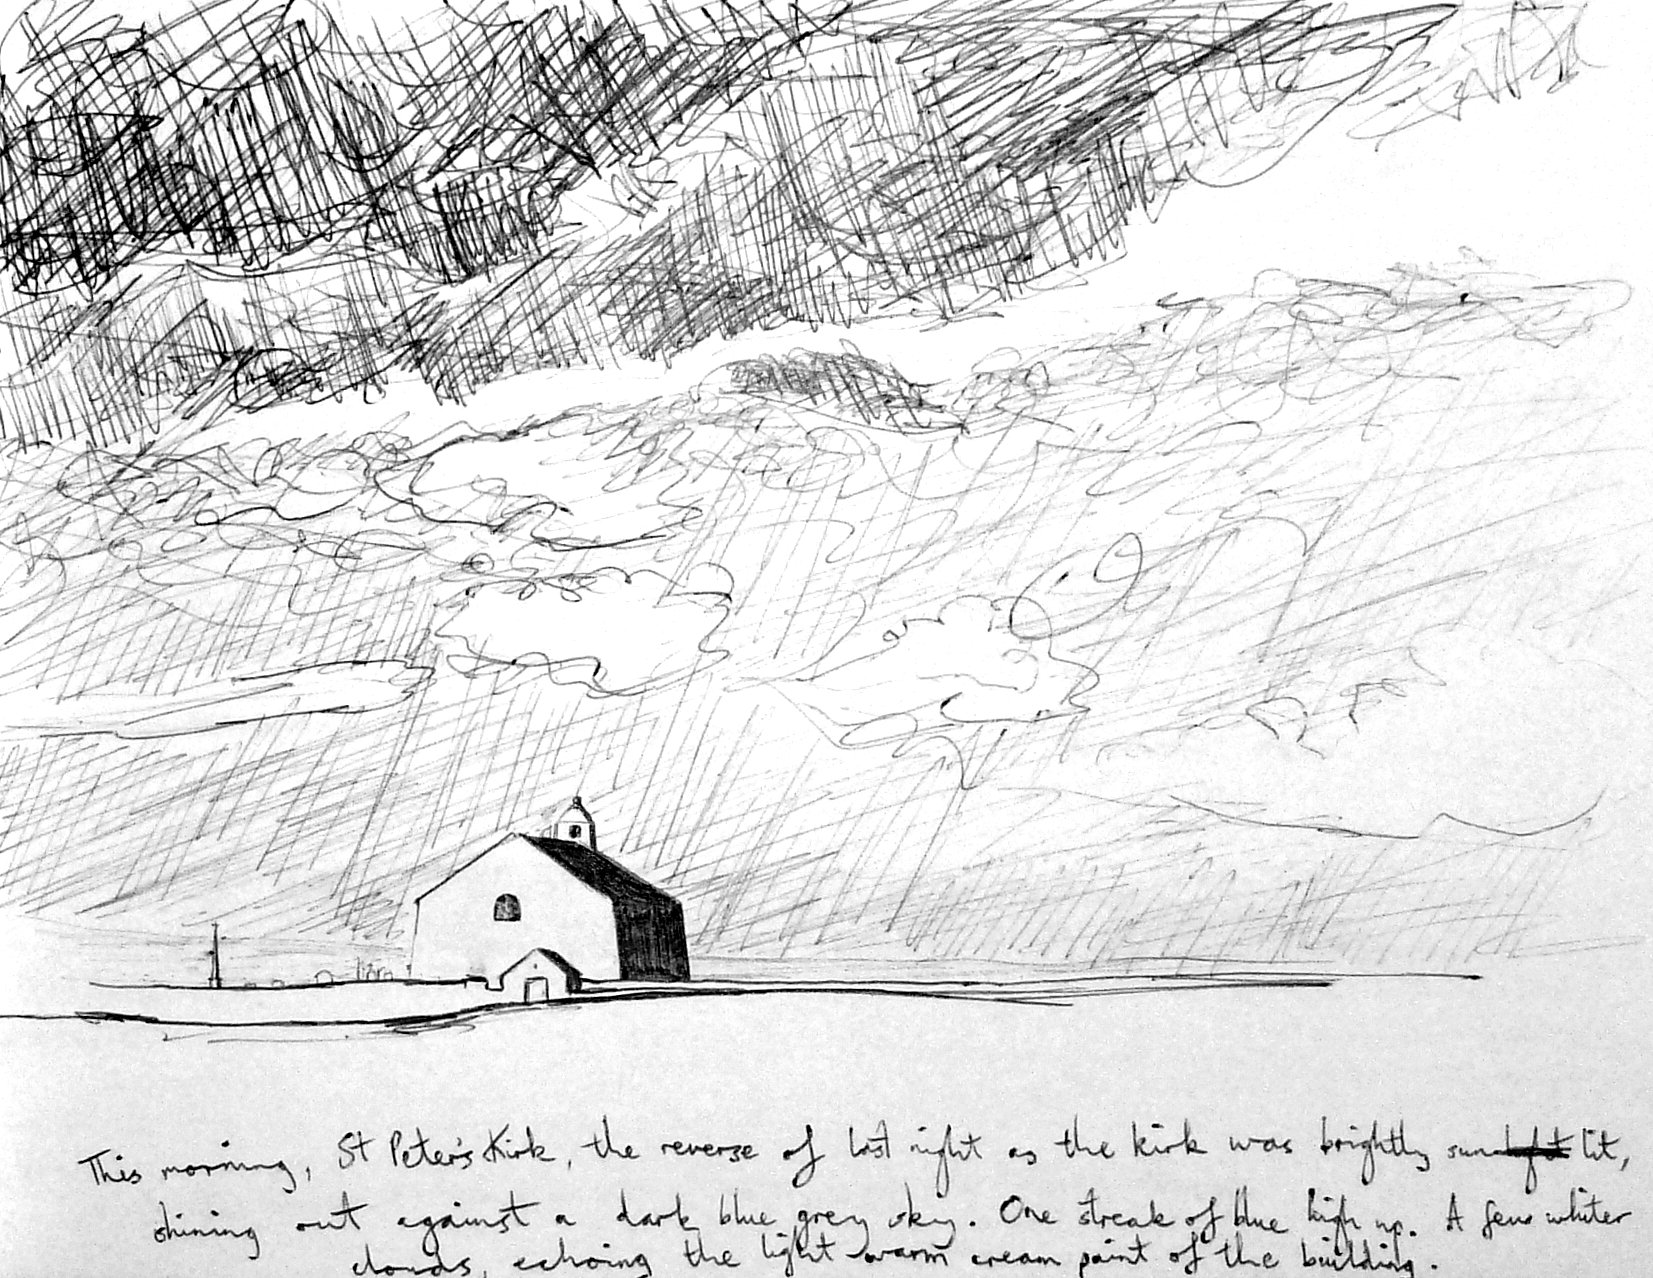 This morning, St Peter's Kirk, the reverse of last night as the kirk was brightly sun lit,
shining out against a dark blue grey sky. One streak of blue high up. A few whiter
clouds, echoing the light warm cream paint of the building.